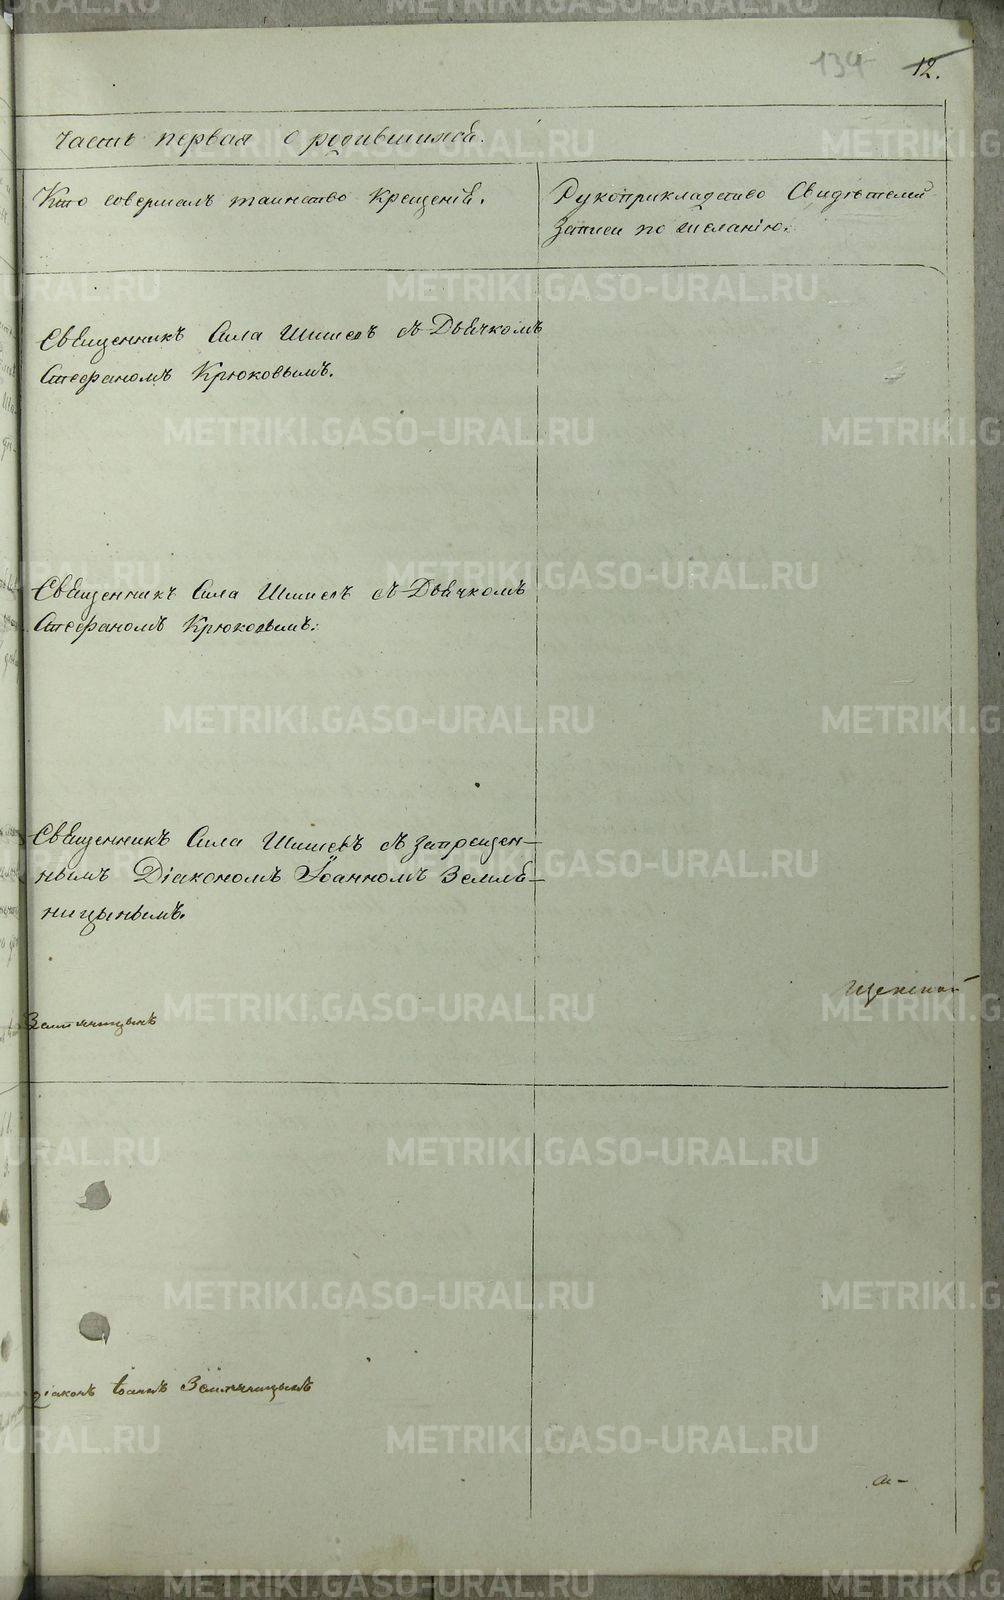 134 12.
Часть первая о родившихся.
Кто совершалъ таинство крещенія.
Рукоприкладство Свидѣтелей
записи по желанію.
Священникъ Сила Шишевъ съ Дьячкомъ
Стефаномъ Крюковымъ.
Священникъ Сила Шишевъ съ Дьячкомъ
Стефаномъ Крюковымъ.
Священникъ Сила Шишевъ съ запрещен-
нымъ Діакономъ Іоанномъ Земля-
ницынымъ.
Земляницынъ
діаконъ Іоаннъ Земляницынъ
METRIKI.GASO-URAL.RU